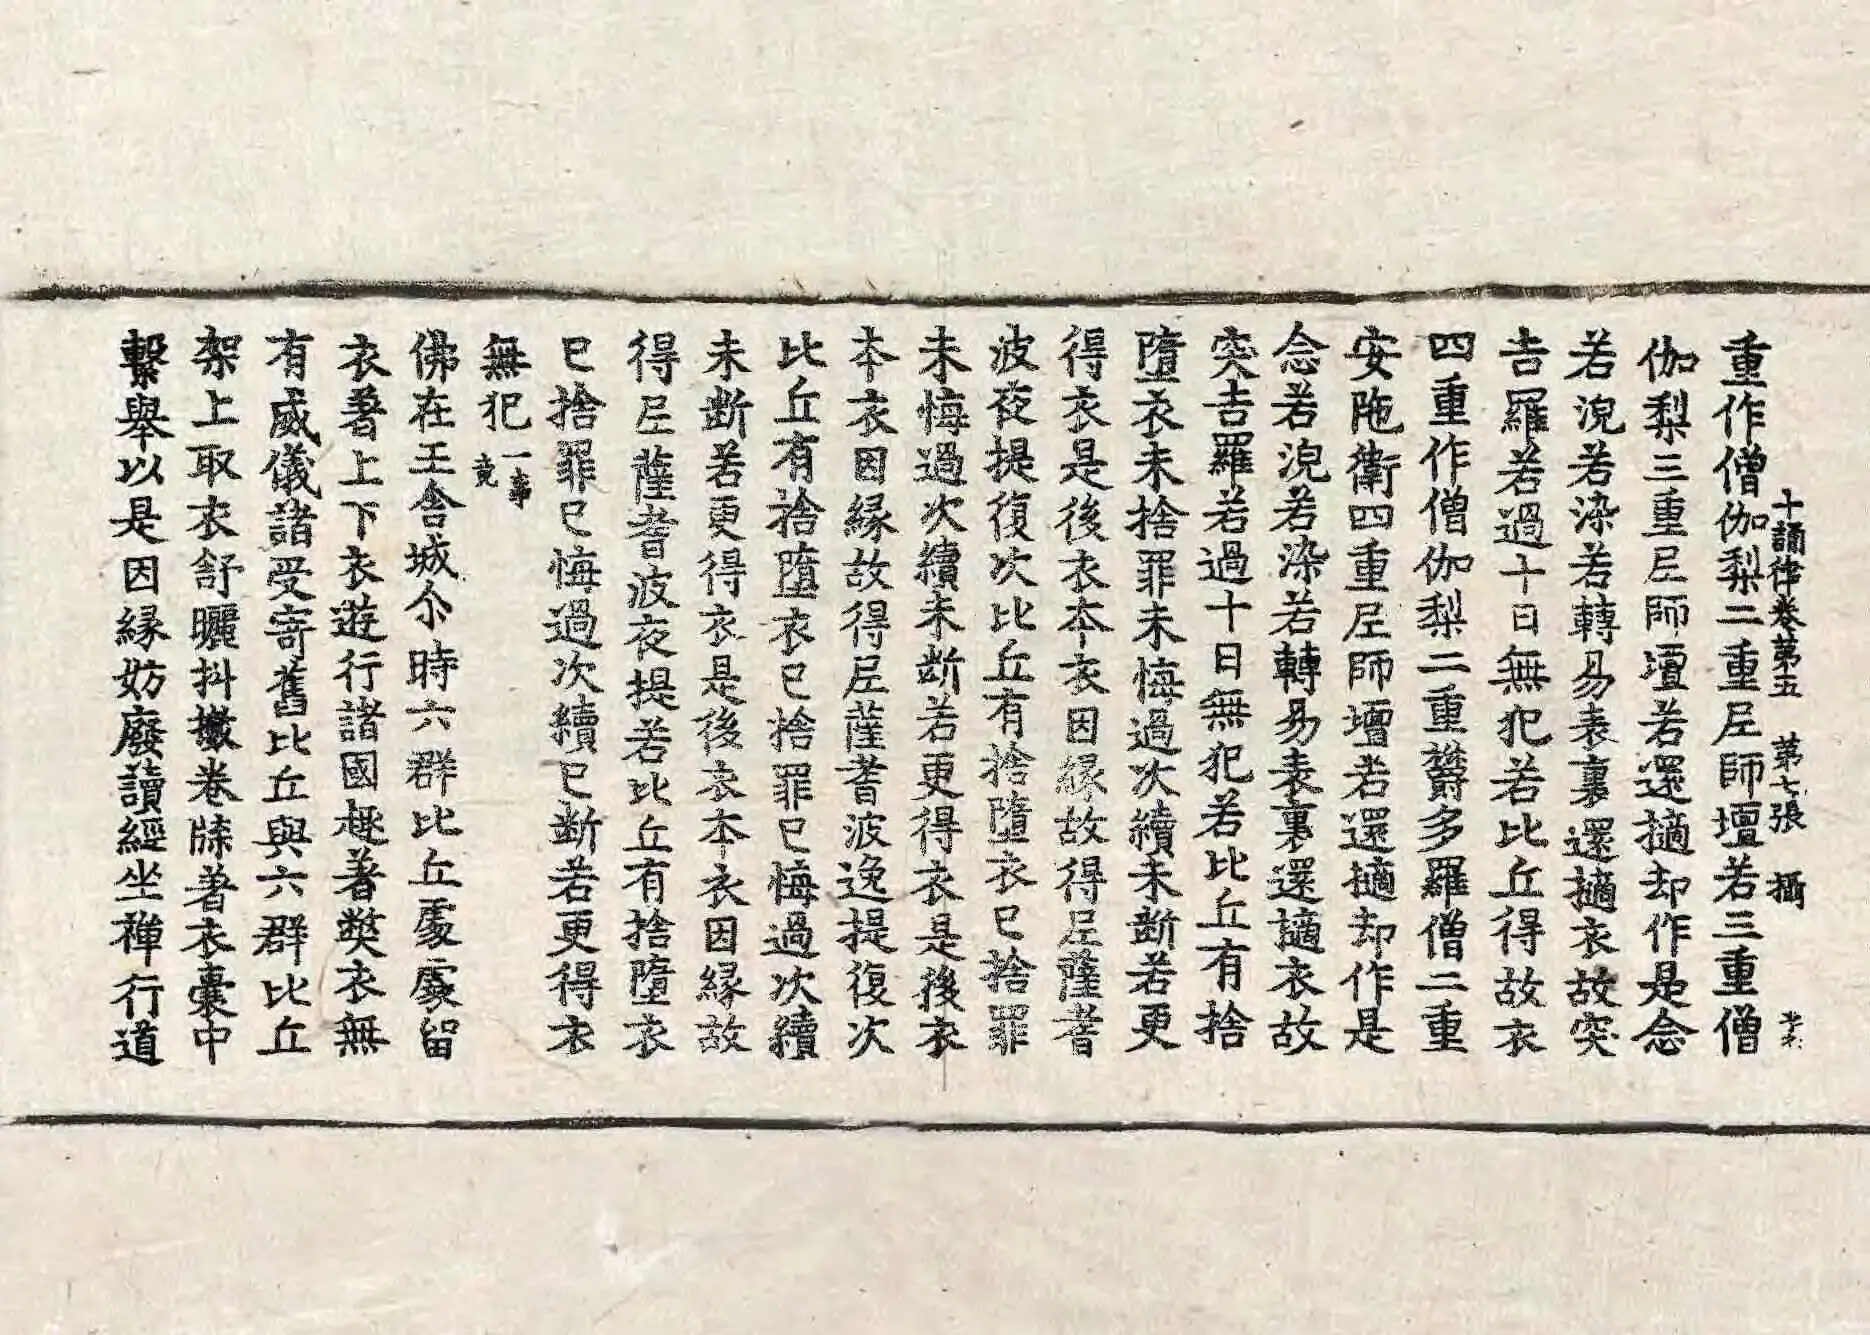 十誦律卷第五　第七張　攝
重作僧伽梨二重尼師壇若三重僧
伽梨三重尼師壇若還擿却作是念
若浣若染若轉易表裏還擿衣故突
吉羅若過十日無犯若比丘得故衣
四重作僧伽梨二重欝多羅僧二重
安陁衛四重尼師壇若還擿却作是
念若浣若染若轉易表裏還擿衣故
突吉羅若過十日無犯若比丘有捨
墮衣未捨罪未悔過次續未断若更
得衣是後衣夲衣因緣故得尼薩耆
波夜提復次比丘有捨墮衣已捨罪
未悔過次續未断若更得衣是後衣
夲衣因緣故得尼薩耆波逸提復次
比丘有捨墮衣已捨罪已悔過次續
未断若更得衣是後衣夲衣因緣故
得尼薩耆波夜提若比丘有捨墮衣
已捨罪已悔過次續已断若更得衣
無犯一事竟
佛在王舍城尒時六群比丘處處留
衣著上下衣遊行諸國趣著獘衣無
有威儀諸受寄舊比丘與六群比丘
架上取衣舒曬抖擻卷牒著衣囊中
繫舉以是因緣妨廢讀經坐禪行道